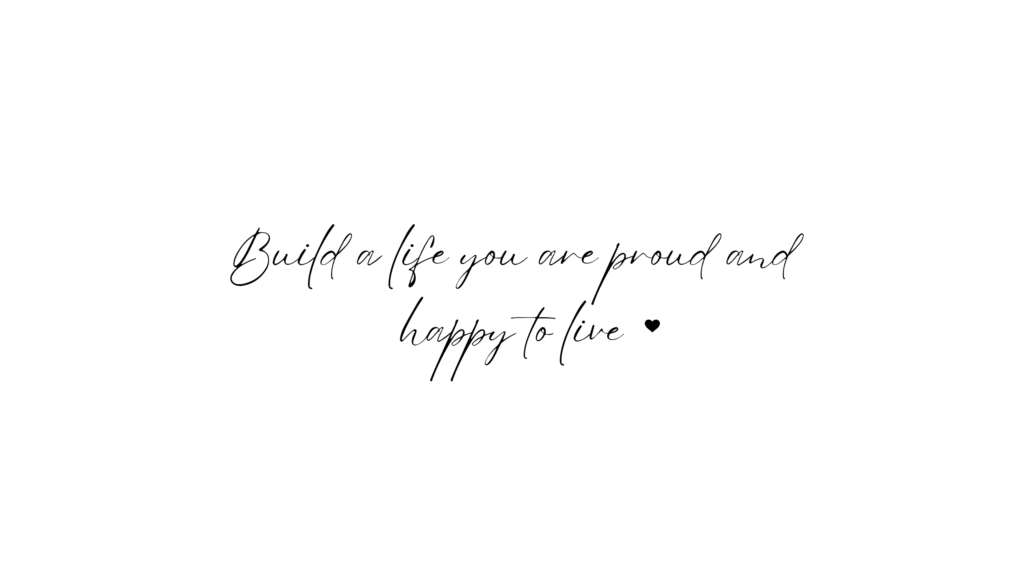 Build a life you are proud and
happy to live ♥